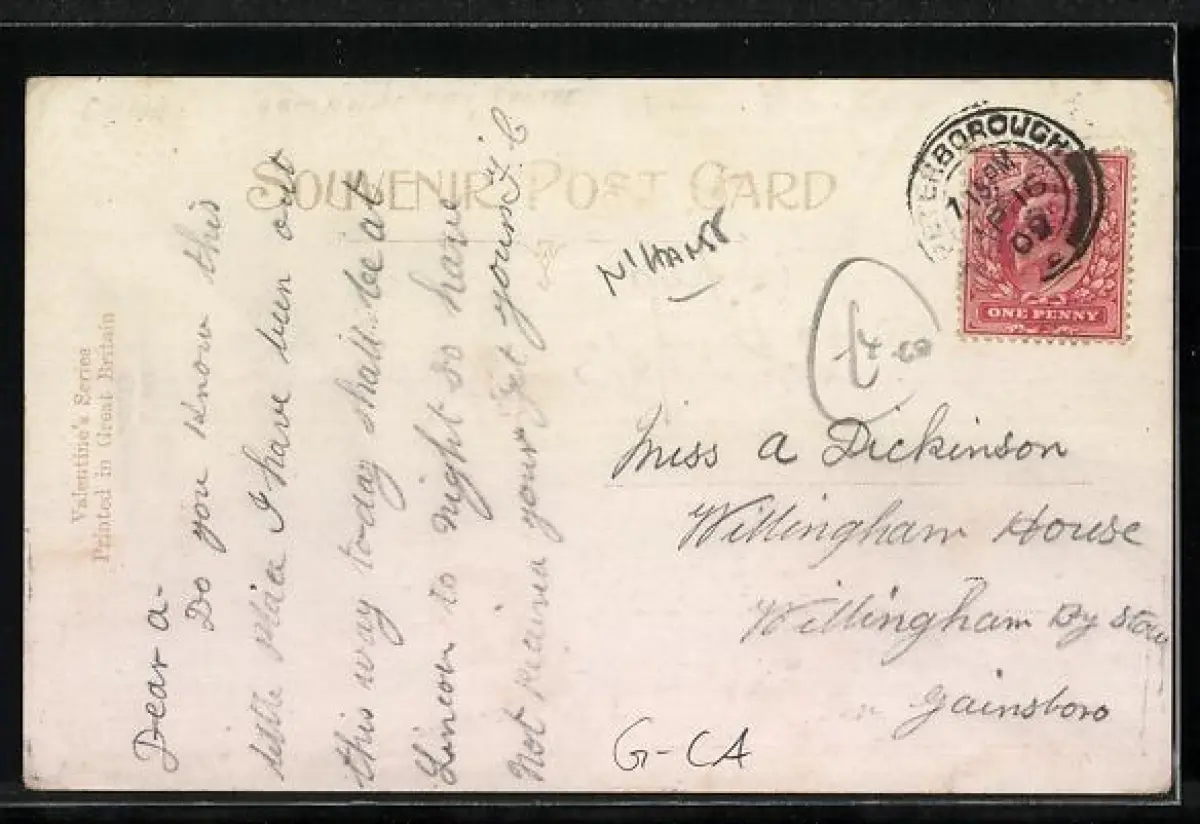 SOUVENIR POST CARD
Valentine's Series
Printed in Great Britain
PETERBOROUGH
7.15 PM
AP 16
09
ONE PENNY
N'HANTS
4.00
Miss A Dickinson
Willingham House
Willingham By Stow
Gainsboro
G-CA
Dear A-
Do you know this
little place I have been out
this way today shall be at
Lincon to night so have
Not received your yet yours